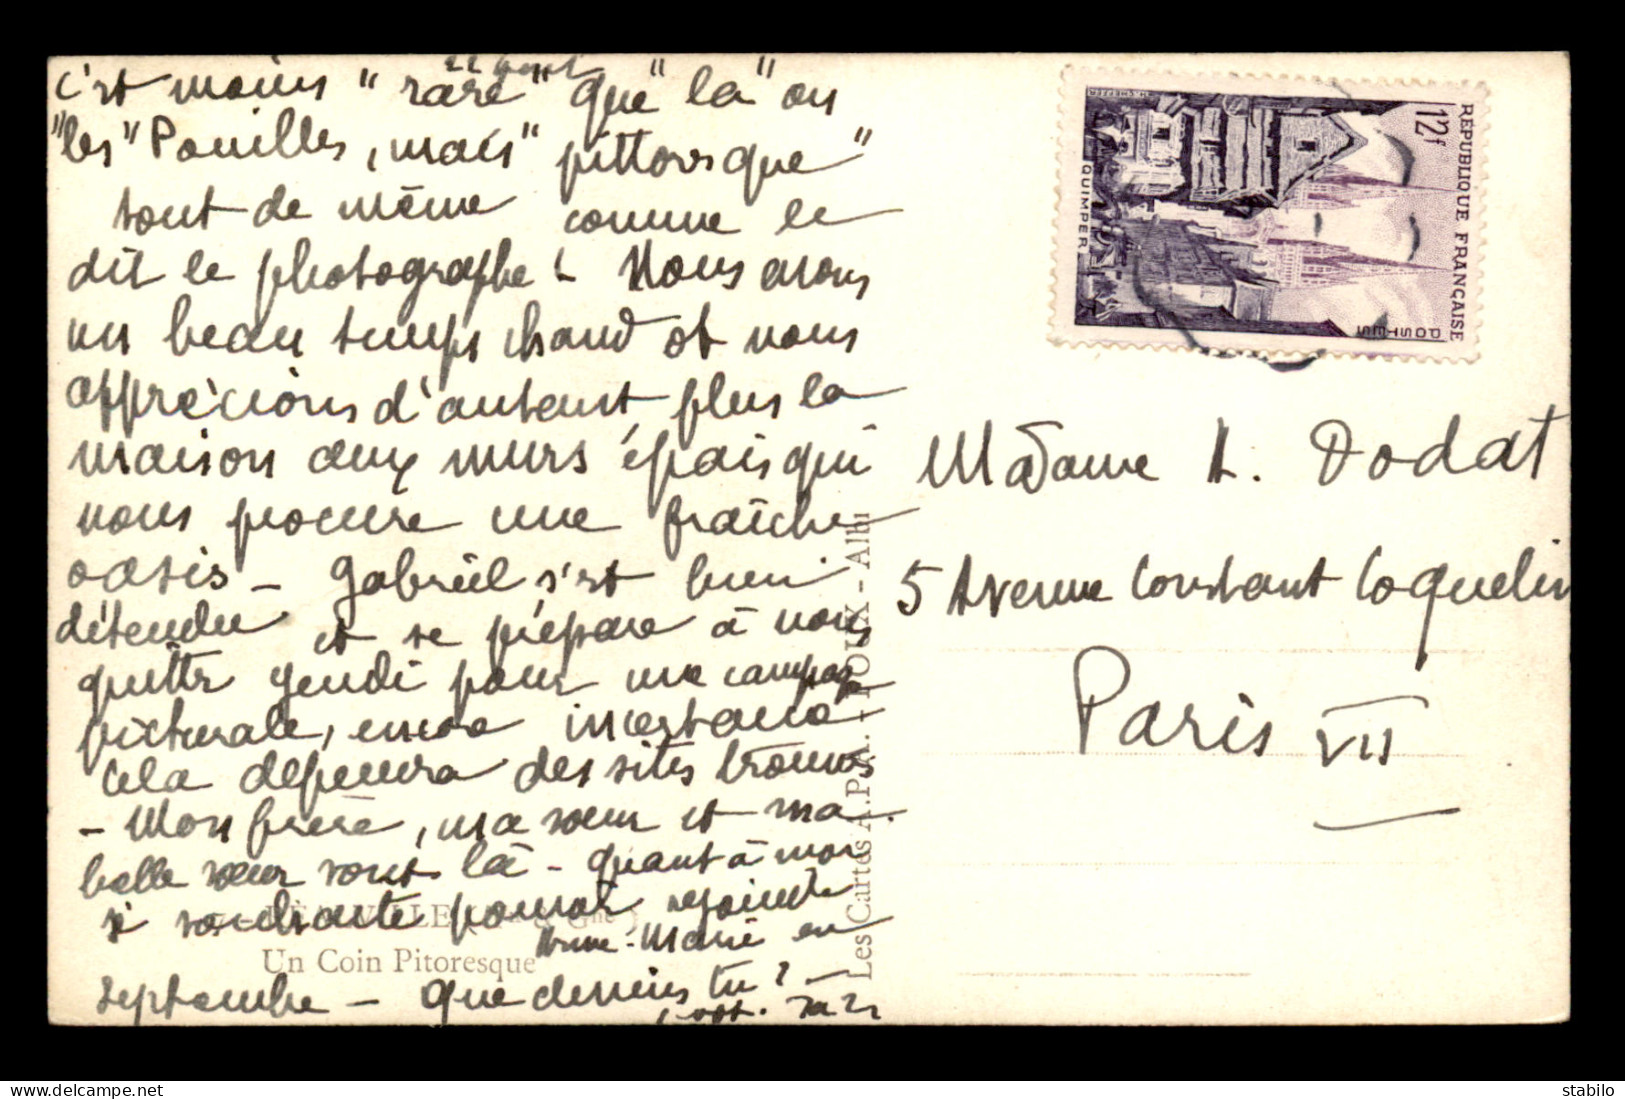 22 Août
c'est moins "rare" que "là" ou
"les" Pouilles, mais "pittoresque"
tout de même comme le
dit le photographe! Nous avons
un beau temps chaud et nous
apprécions d'autant plus la
maison aux murs épais qui
nous procure une fraîche
oasis - Gabriel s'est bien
détendu et se prépare à nous
quitter jeudi pour une campag
picturale, encore incertaine
cela dépendra des sites trouvés
- Mon frère, ma sœur et ma
belle sœur sont là - quant à moi
si souhaite pouvoir rejoindre
Anne-Marie en
septembre - que deviens tu? -
VILLE
Un Coin Pitoresque
Les Cartes A.P.A. - POUX - Albi
RÉPUBLIQUE FRANÇAISE
POSTES
12f
QUIMPER
Madame A. Dodat
5 Avenue Constant Coquelin
Paris VII
stabilo